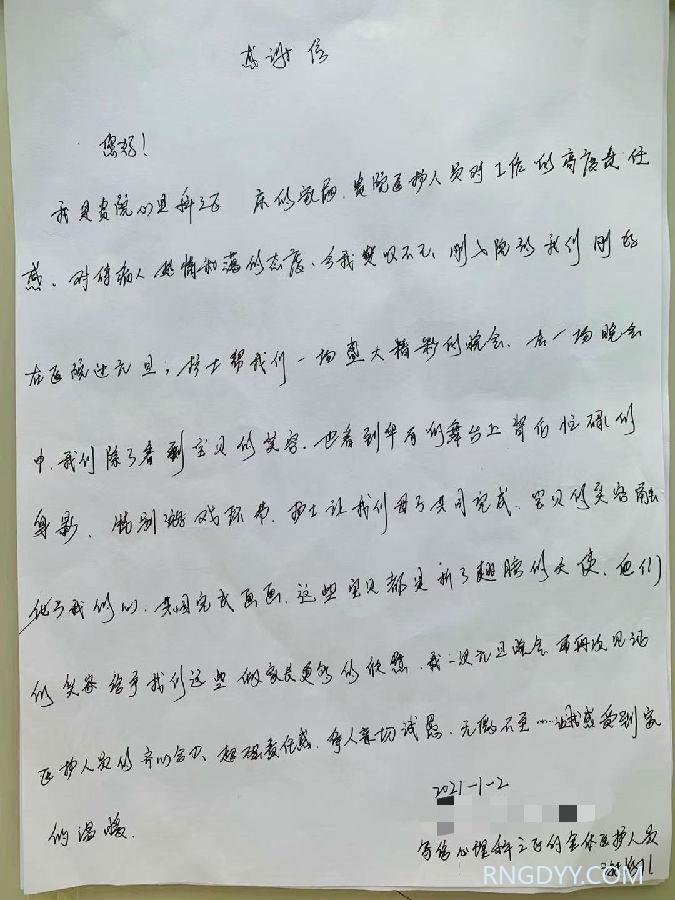 感谢信
您好！
我是贵院心理科三区 床的家属，贵院医护人员对工作的高度责任
感，对待病人热情和蔼的态度，令我赞叹不已，刚入院我们刚好
在医院过元旦；护士帮我们一场盛大精彩的晚会，在一场晚会
中，我们除了看到宝贝的笑容，也看到华有的舞台上背后忙碌的
身影，特别游戏环节，护士让我们母子共同完成，宝贝的笑容融
化了我们的，共同完成画画，这些宝贝都是折了翅膀的天使，他们
的笑容给予我们这些做家长的，我一次元旦晚会 再次见证
医护人员的齐心合力、超强责任感，待人亲切诚恳，无微不至……让我感受到家
的温暖。
2021-1-2
写给心理科三区的全体医护人员
RNGDYY.COM